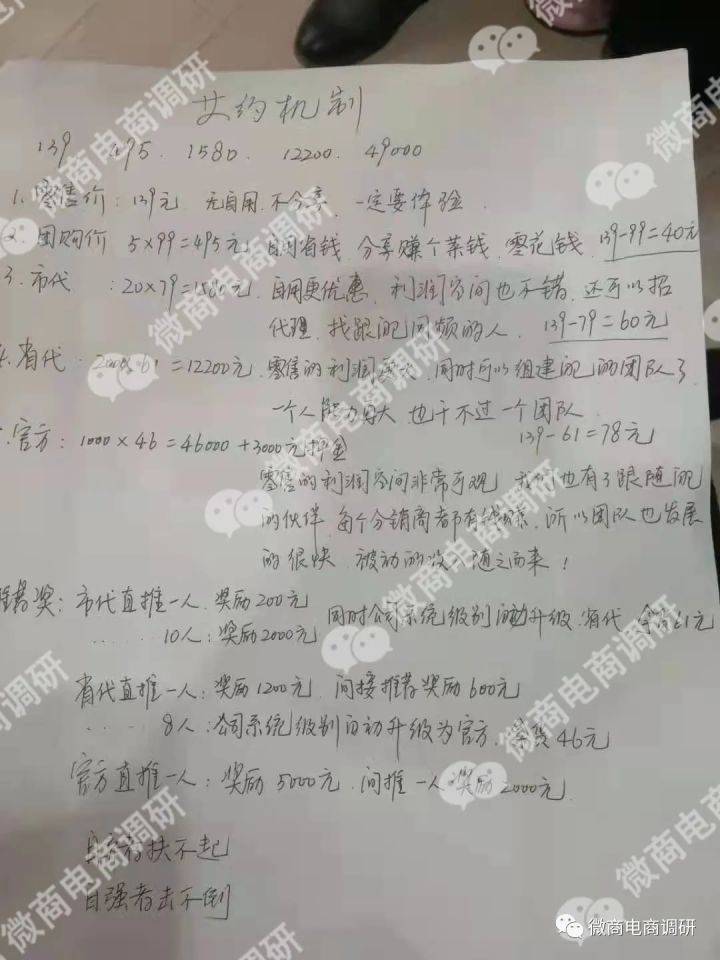 艾约机制
139 495. 1580. 12200. 49000
1. 零售价: 139元 无自用.不分享. 一定要体验.
2. 团购价 5×99=495元 自用省钱 分享赚个菜钱、零花钱 139-99=40元
3. 市代 : 20×79=1580元. 自用更优惠, 利润空间也不错.还可以招
代理. 找跟我同频的人. 139-79=60元
4. 省代: 200×61=12200元. 零售的利润更大, 同时可以组建我的团队了
一个人能力再大 也干不过一个团队
139-61=78元
官方: 1000×46=46000+3000元押金
零售的利润空间非常可观 我们也有了跟随我
的伙伴.每个分销商者都有钱赚, 所以团队也发展
的很快 被动的收入随之而来!
推荐奖: 市代直推一人.奖励200元
...... 10人:奖励2000元 同时公司系统级别自动升级.省代 拿货61元
省代直推一人:奖励1200元 间接推荐奖励600元
...... 8人:公司系统级别自动升级为官方.拿货46元
官方直推一人: 奖励5000元.间推一人奖励2000元.
自弃者扶不起
自强者击不倒
微商电商调研
微商电商调研
微商电商调研
微商电商调研
微商电商调研
微商电商调研
微商电商调研
微商电商调研
微商电商调研
微商电商调研